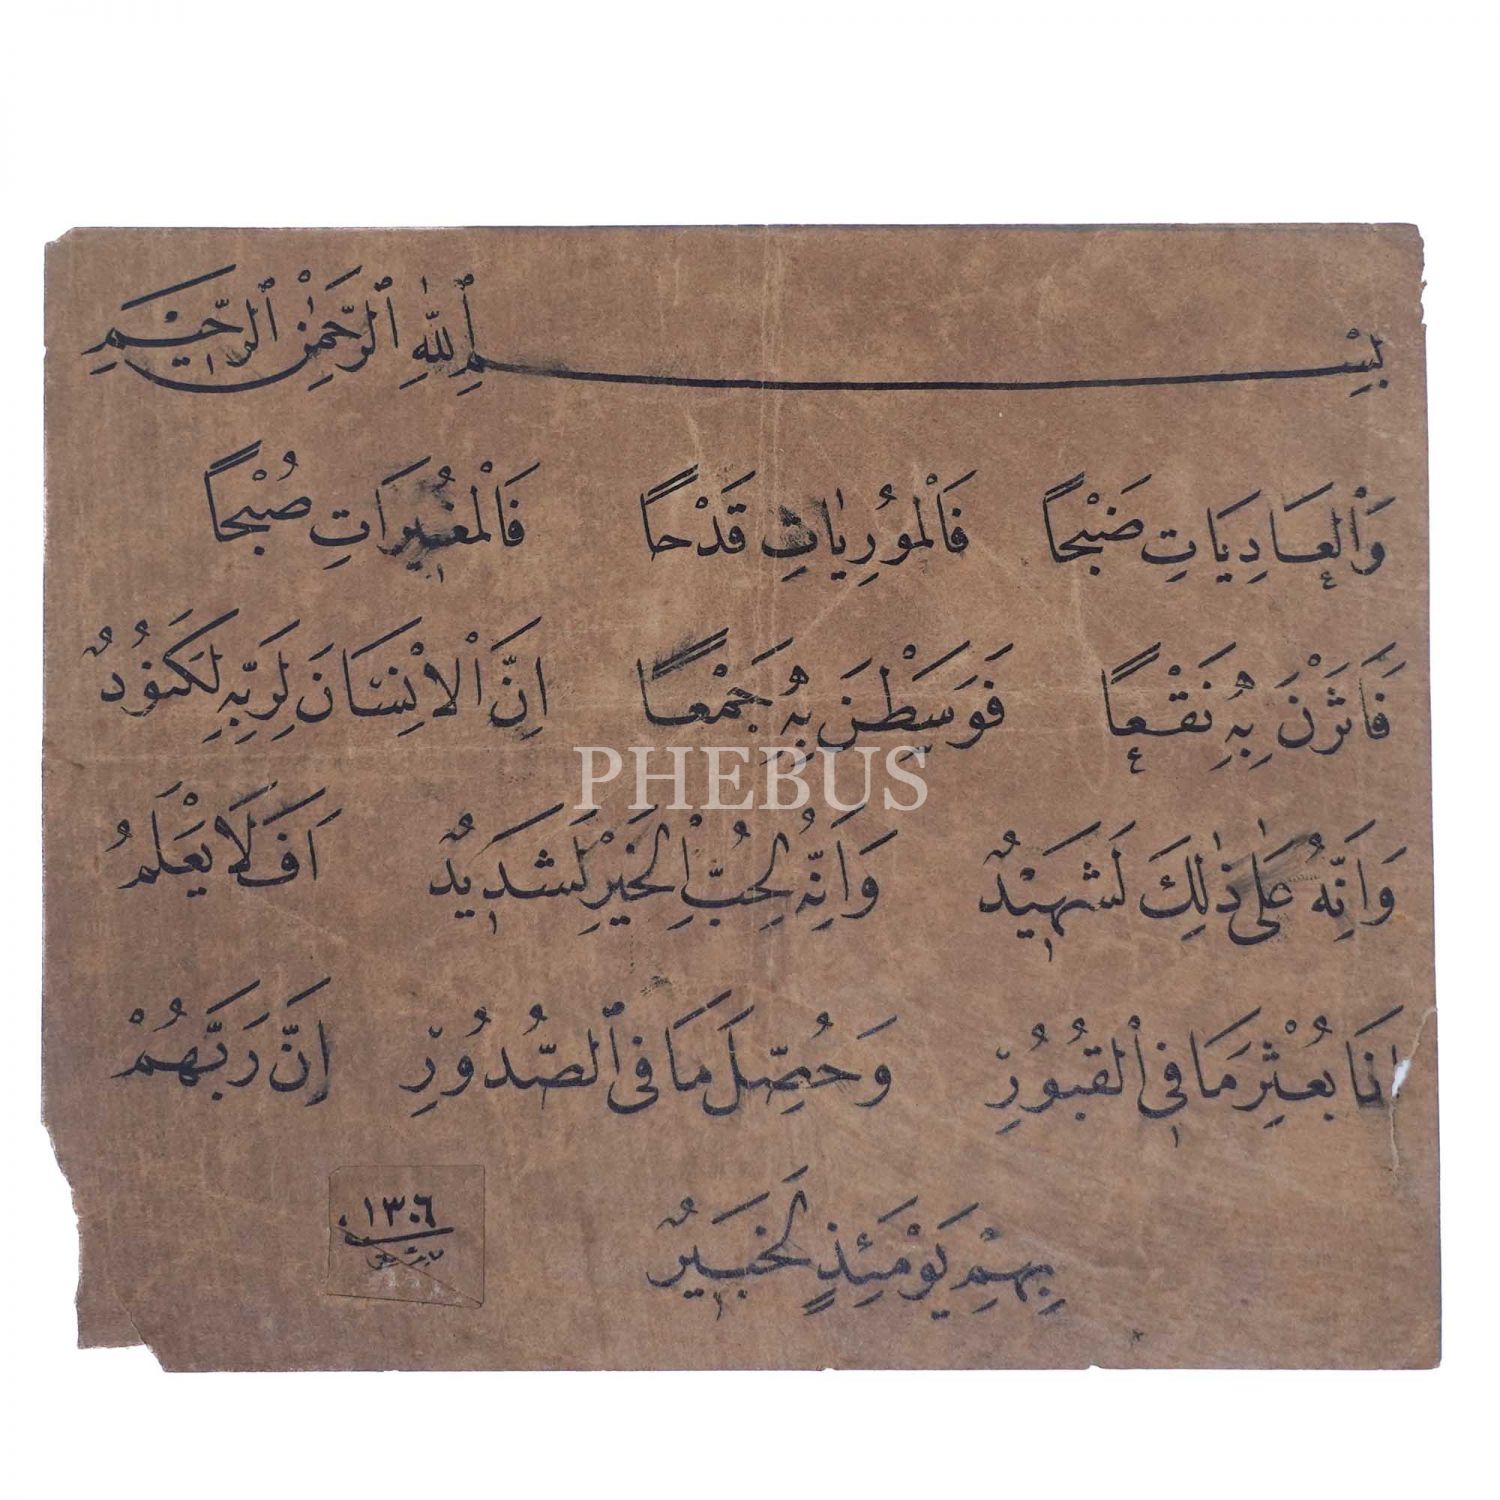 بِسْمِ اللّٰهِ الرَّحْمٰنِ الرَّحِيْمِ
وَالْعَادِيَاتِ ضَبْحًا فَالْمُورِيَاتِ قَدْحًا فَالْمُغِيرَاتِ صُبْحًا
فَاَثَرْنَ بِهٖ نَقْعًا فَوَسَطْنَ بِهٖ جَمْعًا اِنَّ الْاِنْسَانَ لِرَبِّهٖ لَكَنُودٌ
وَاِنَّهُ عَلٰى ذٰلِكَ لَشَهِيْدٌ وَاِنَّهُ لِحُبِّ الْخَيْرِ لَشَدِيدٌ اَفَلَا يَعْلَمُ
اِذَا بُعْثِرَ مَا فِى الْقُبُورِ وَحُصِّلَ مَا فِى الصُّدُورِ اِنَّ رَبَّهُمْ
بِهِمْ يَوْمَئِذٍ لَخَبِيرٌ
١٣٠٦
PHEBUS